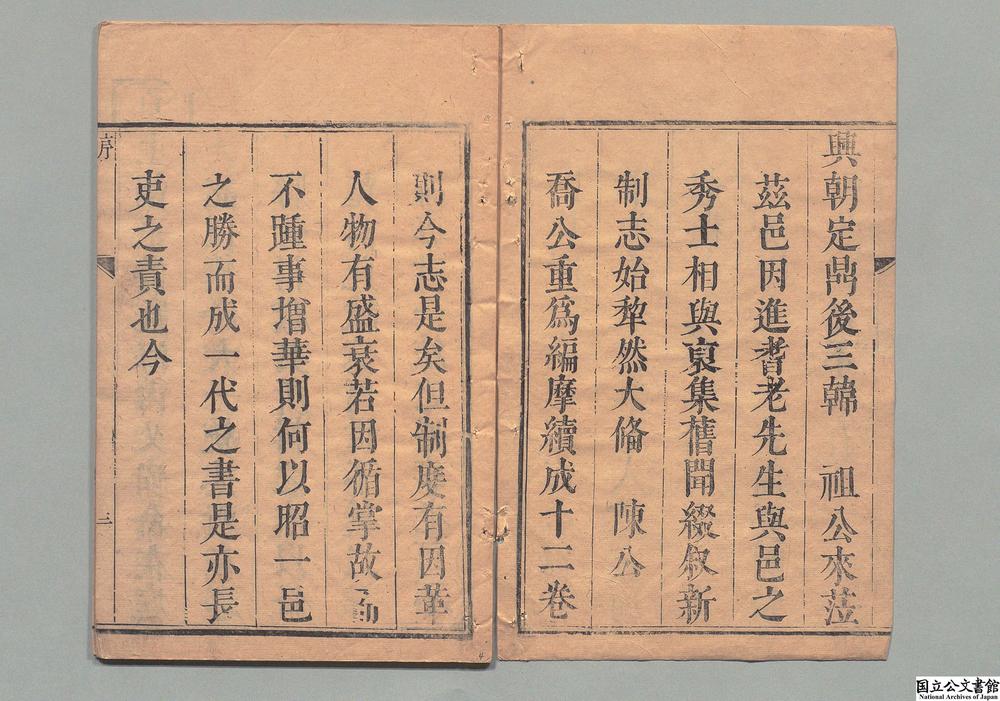 興朝定鼎後三韓 祖公來蒞
茲邑因進耆老先生與邑之
秀士相與裒集舊聞綴叙新
制志始犂然大俻 陳公
喬公重爲編摩續成十二卷
則今志是矣但制度有因革
人物有盛衰若因循掌故而
不踵事增華則何以昭一邑
之勝而成一代之書是亦長
吏之責也今
序
三
国立公文書館
National Archives of Japan